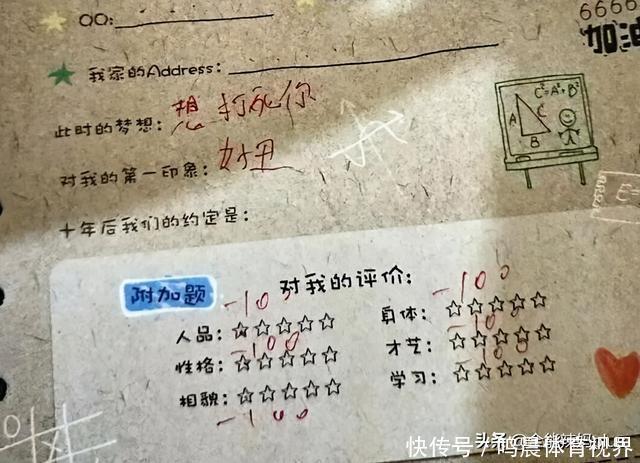 6666
QQ:
加油
我家的Address:
此时的梦想: 想打死你
C²=A²+B²
A C
B
对我的第一印象: 好丑
十年后我们的约定是:
附加题 对我的评价:
-100 -100
人品:☆☆☆☆☆ 身体:☆☆☆☆☆
-100 -100
性格:☆☆☆☆☆ 才艺:☆☆☆☆☆
-100
相貌:☆☆☆☆☆ 学习:☆☆☆☆☆
-100
快传号/鸣晨体育视界